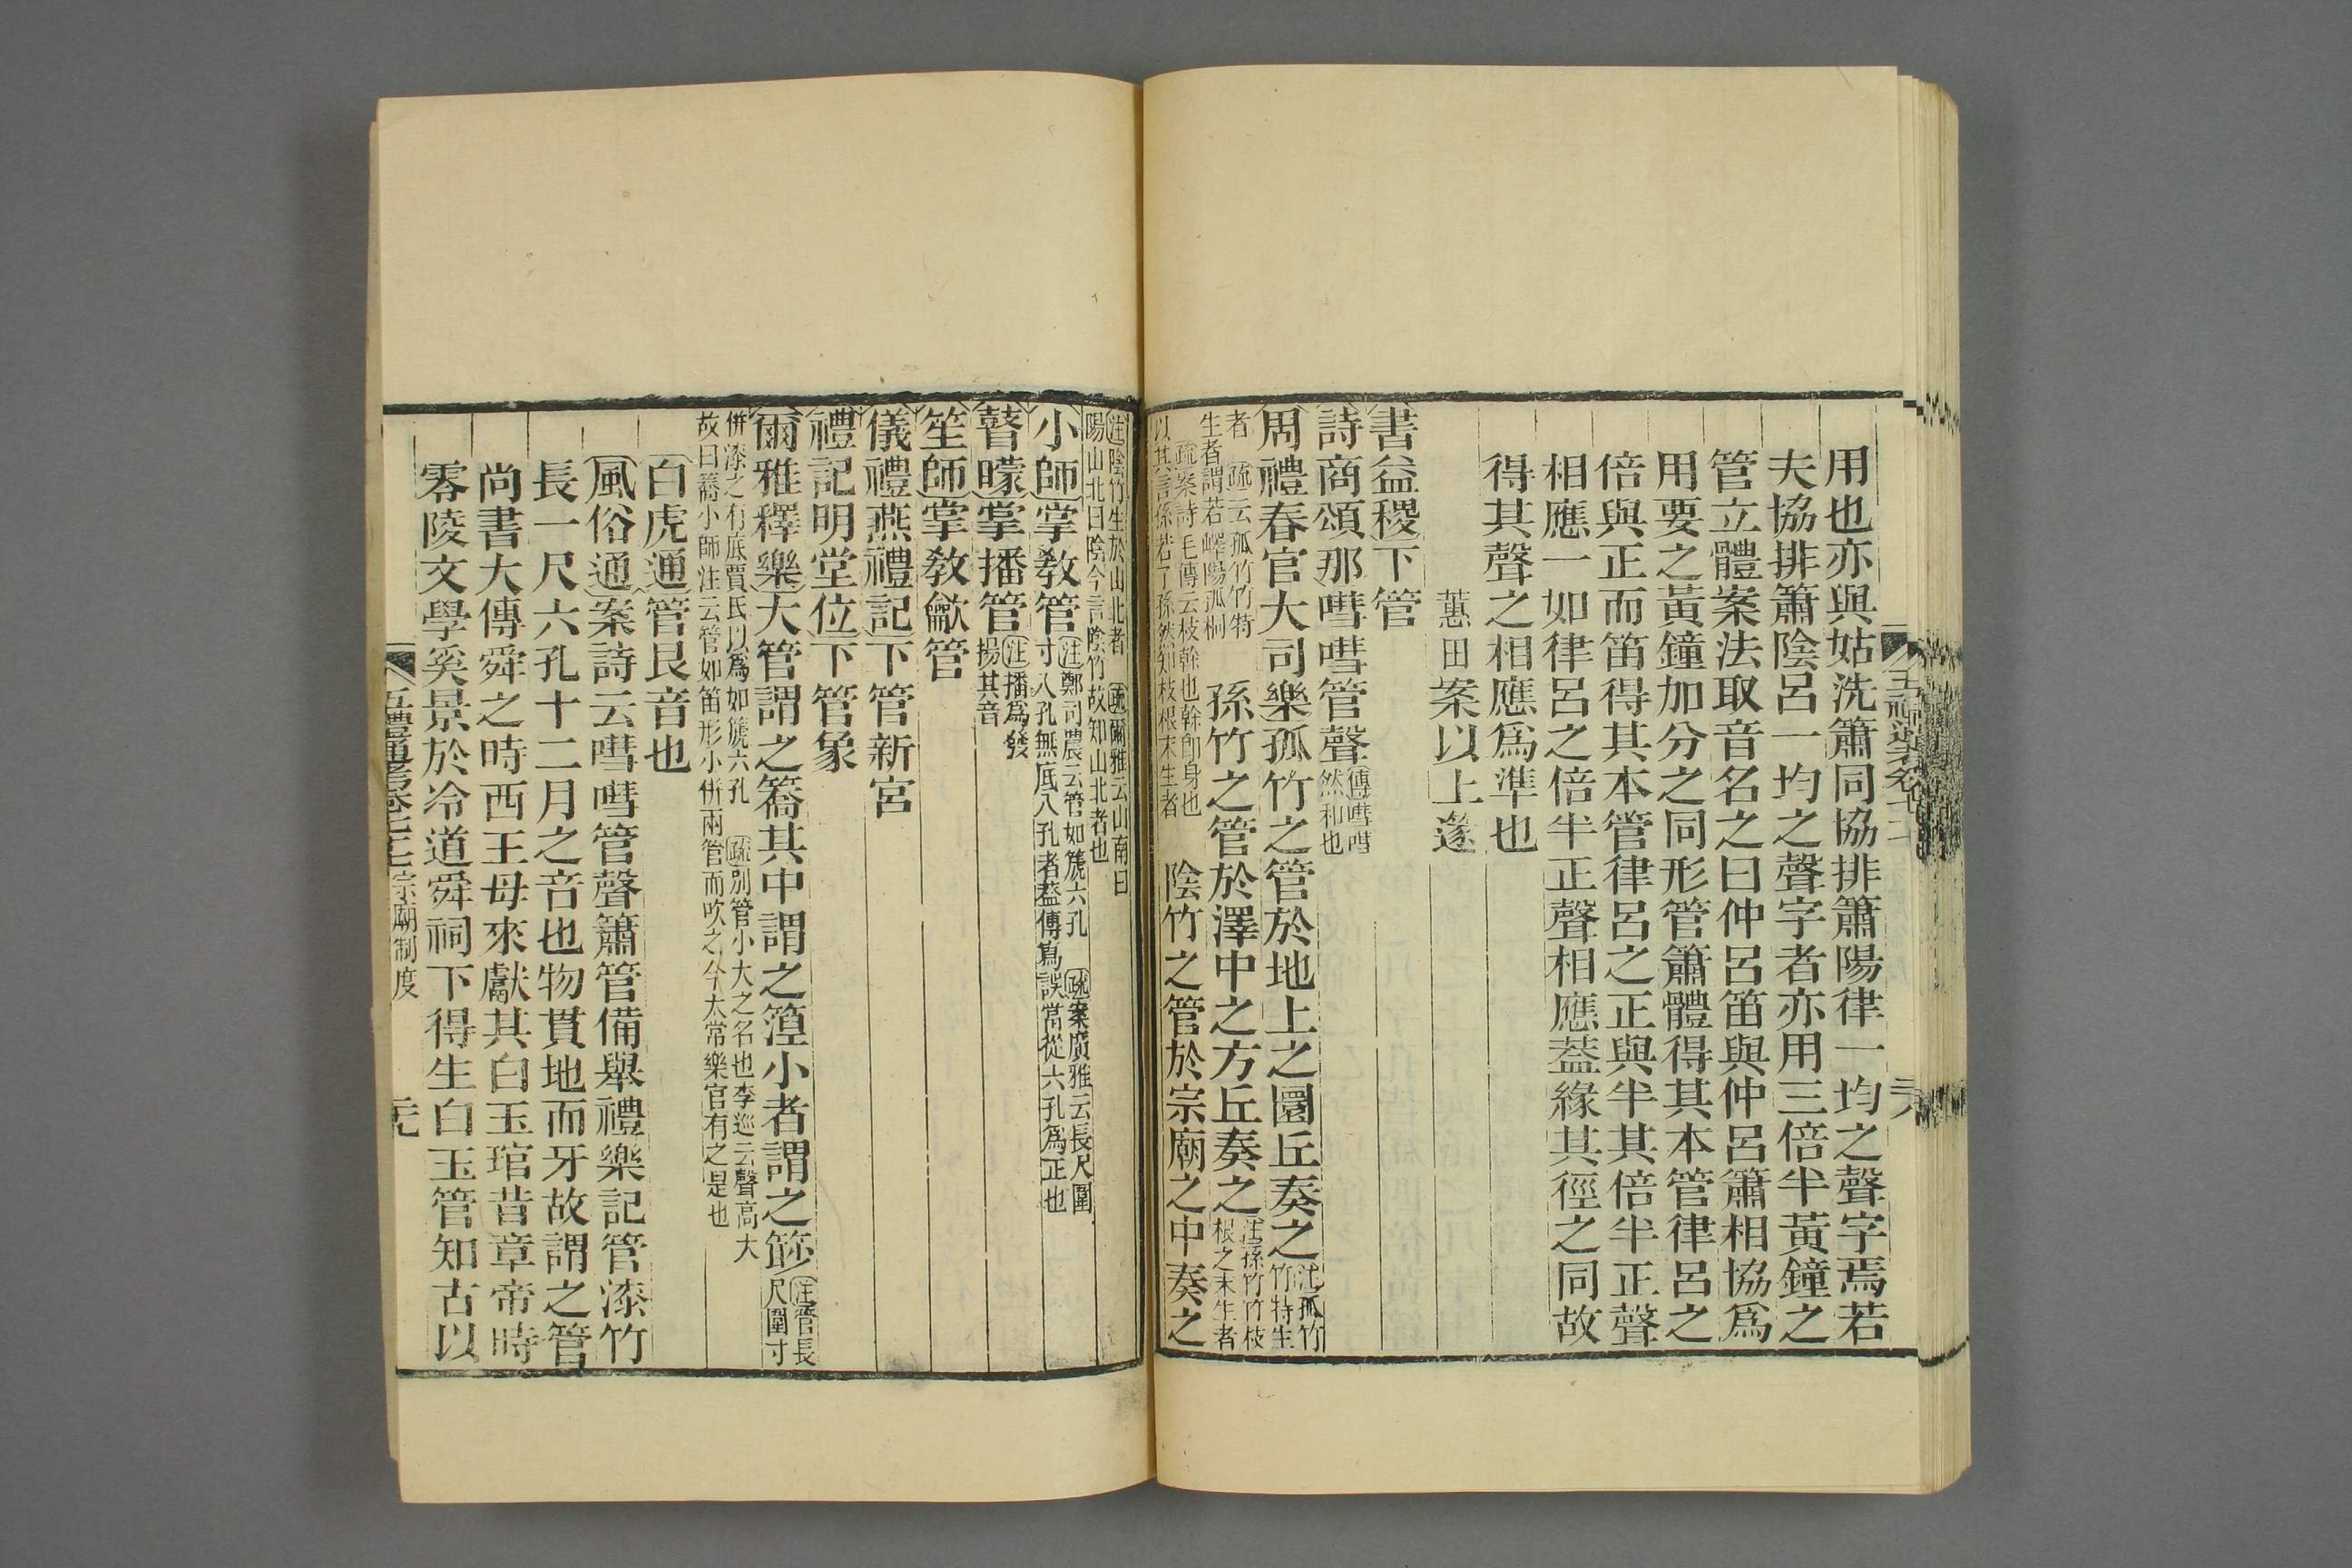 用也亦與姑洗簫同協排簫陽律一均之聲字焉若
夫協排簫陰呂一均之聲字者亦用三倍半黃鐘之
管立體案法取音名之曰仲呂笛與仲呂簫相協爲
用要之黃鐘加分之同形管簫體得其本管律呂之
倍與正而笛得其本管律呂之正與半其倍半正聲
相應一如律呂之倍半正聲相應蓋緣其徑之同故
得其聲之相應爲準也
蕙田案以上篴
書益稷下管
詩商頌那嘒嘒管聲傳嘒嘒
然和也
周禮春官大司樂孤竹之管於地上之圜丘奏之注孤竹
竹特生
者 疏云孤竹竹特
生者謂若嶧陽孤桐
孫竹之管於澤中之方丘奏之注孫竹竹枝
根之末生者
疏案詩毛傳云枝幹也幹卽身也
以其言孫若子孫然知枝根末生者
陰竹之管於宗廟之中奏之
注陰竹生於山北者 疏爾雅云山南曰
陽山北曰陰今言陰竹故知山北者也
小師掌敎管注鄭司農云管如篪六孔 疏案廣雅云長尺圍
寸八孔無底八孔者蓋傳寫誤當從六孔爲正也
瞽矇掌播管注播爲發
揚其音
笙師掌敎龡管
儀禮燕禮記下管新宮
禮記明堂位下管象
爾雅釋樂大管謂之簥其中謂之篞小者謂之篎注管長
尺圍寸
併漆之有底賈氏以爲如篪六孔 疏別管小大之名也李巡云聲高大
故曰簥小師注云管如笛形小併兩管而吹之今太常樂官有之是也
白虎通管艮音也
風俗通案詩云嘒嘒管聲簫管備舉禮樂記管漆竹
長一尺六孔十二月之音也物貫地而牙故謂之管
尚書大傳舜之時西王母來獻其白玉琯昔章帝時
零陵文學奚景於冷道舜祠下得生白玉管知古以
五禮通考卷七十七宗廟制度